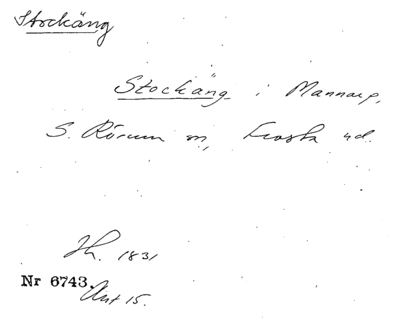 Stockäng
Stockäng i Mannarp,
S. Rörum sn, Frosta hd.
Jh. 1831
Nr 6743.
Ant 15.